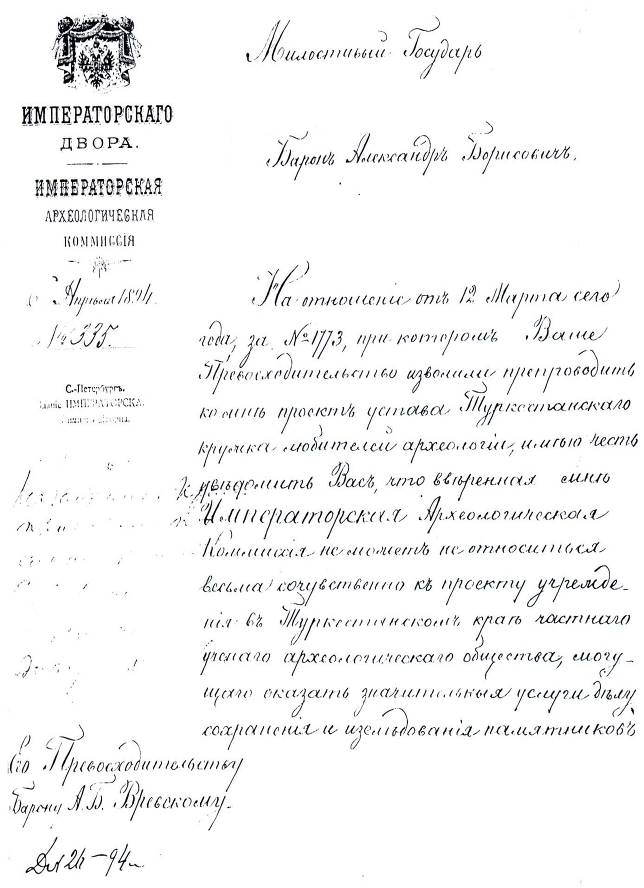 ИМПЕРАТОРСКАГО
ДВОРА.
ИМПЕРАТОРСКАЯ
АРХЕОЛОГИЧЕСКАЯ
КОММИССІЯ
Апрѣля 1894
№ 335
С.-Петербургъ.
ИМПЕРАТОРСКА
Милостивый Государь
Баронъ Александръ Борисовичъ.
На отношеніе отъ 12 Марта сего
года, за № 1773, при которомъ Ваше
Превосходительство изволили препроводить
ко мнѣ проектъ устава Туркестанскаго
кружка любителей археологіи, имѣю честь
увѣдомить Васъ, что ввѣренная мнѣ
Императорская Археологическая
Коммиссія не можетъ не относиться
весьма сочувственно къ проекту учрежде-
нія въ Туркестанскомъ краѣ частнаго
ученаго археологическаго общества, могу-
щаго оказать значительныя услуги дѣлу
сохраненія и изслѣдованія памятниковъ
Его Превосходительству
Барону А. Б. Вревскому.